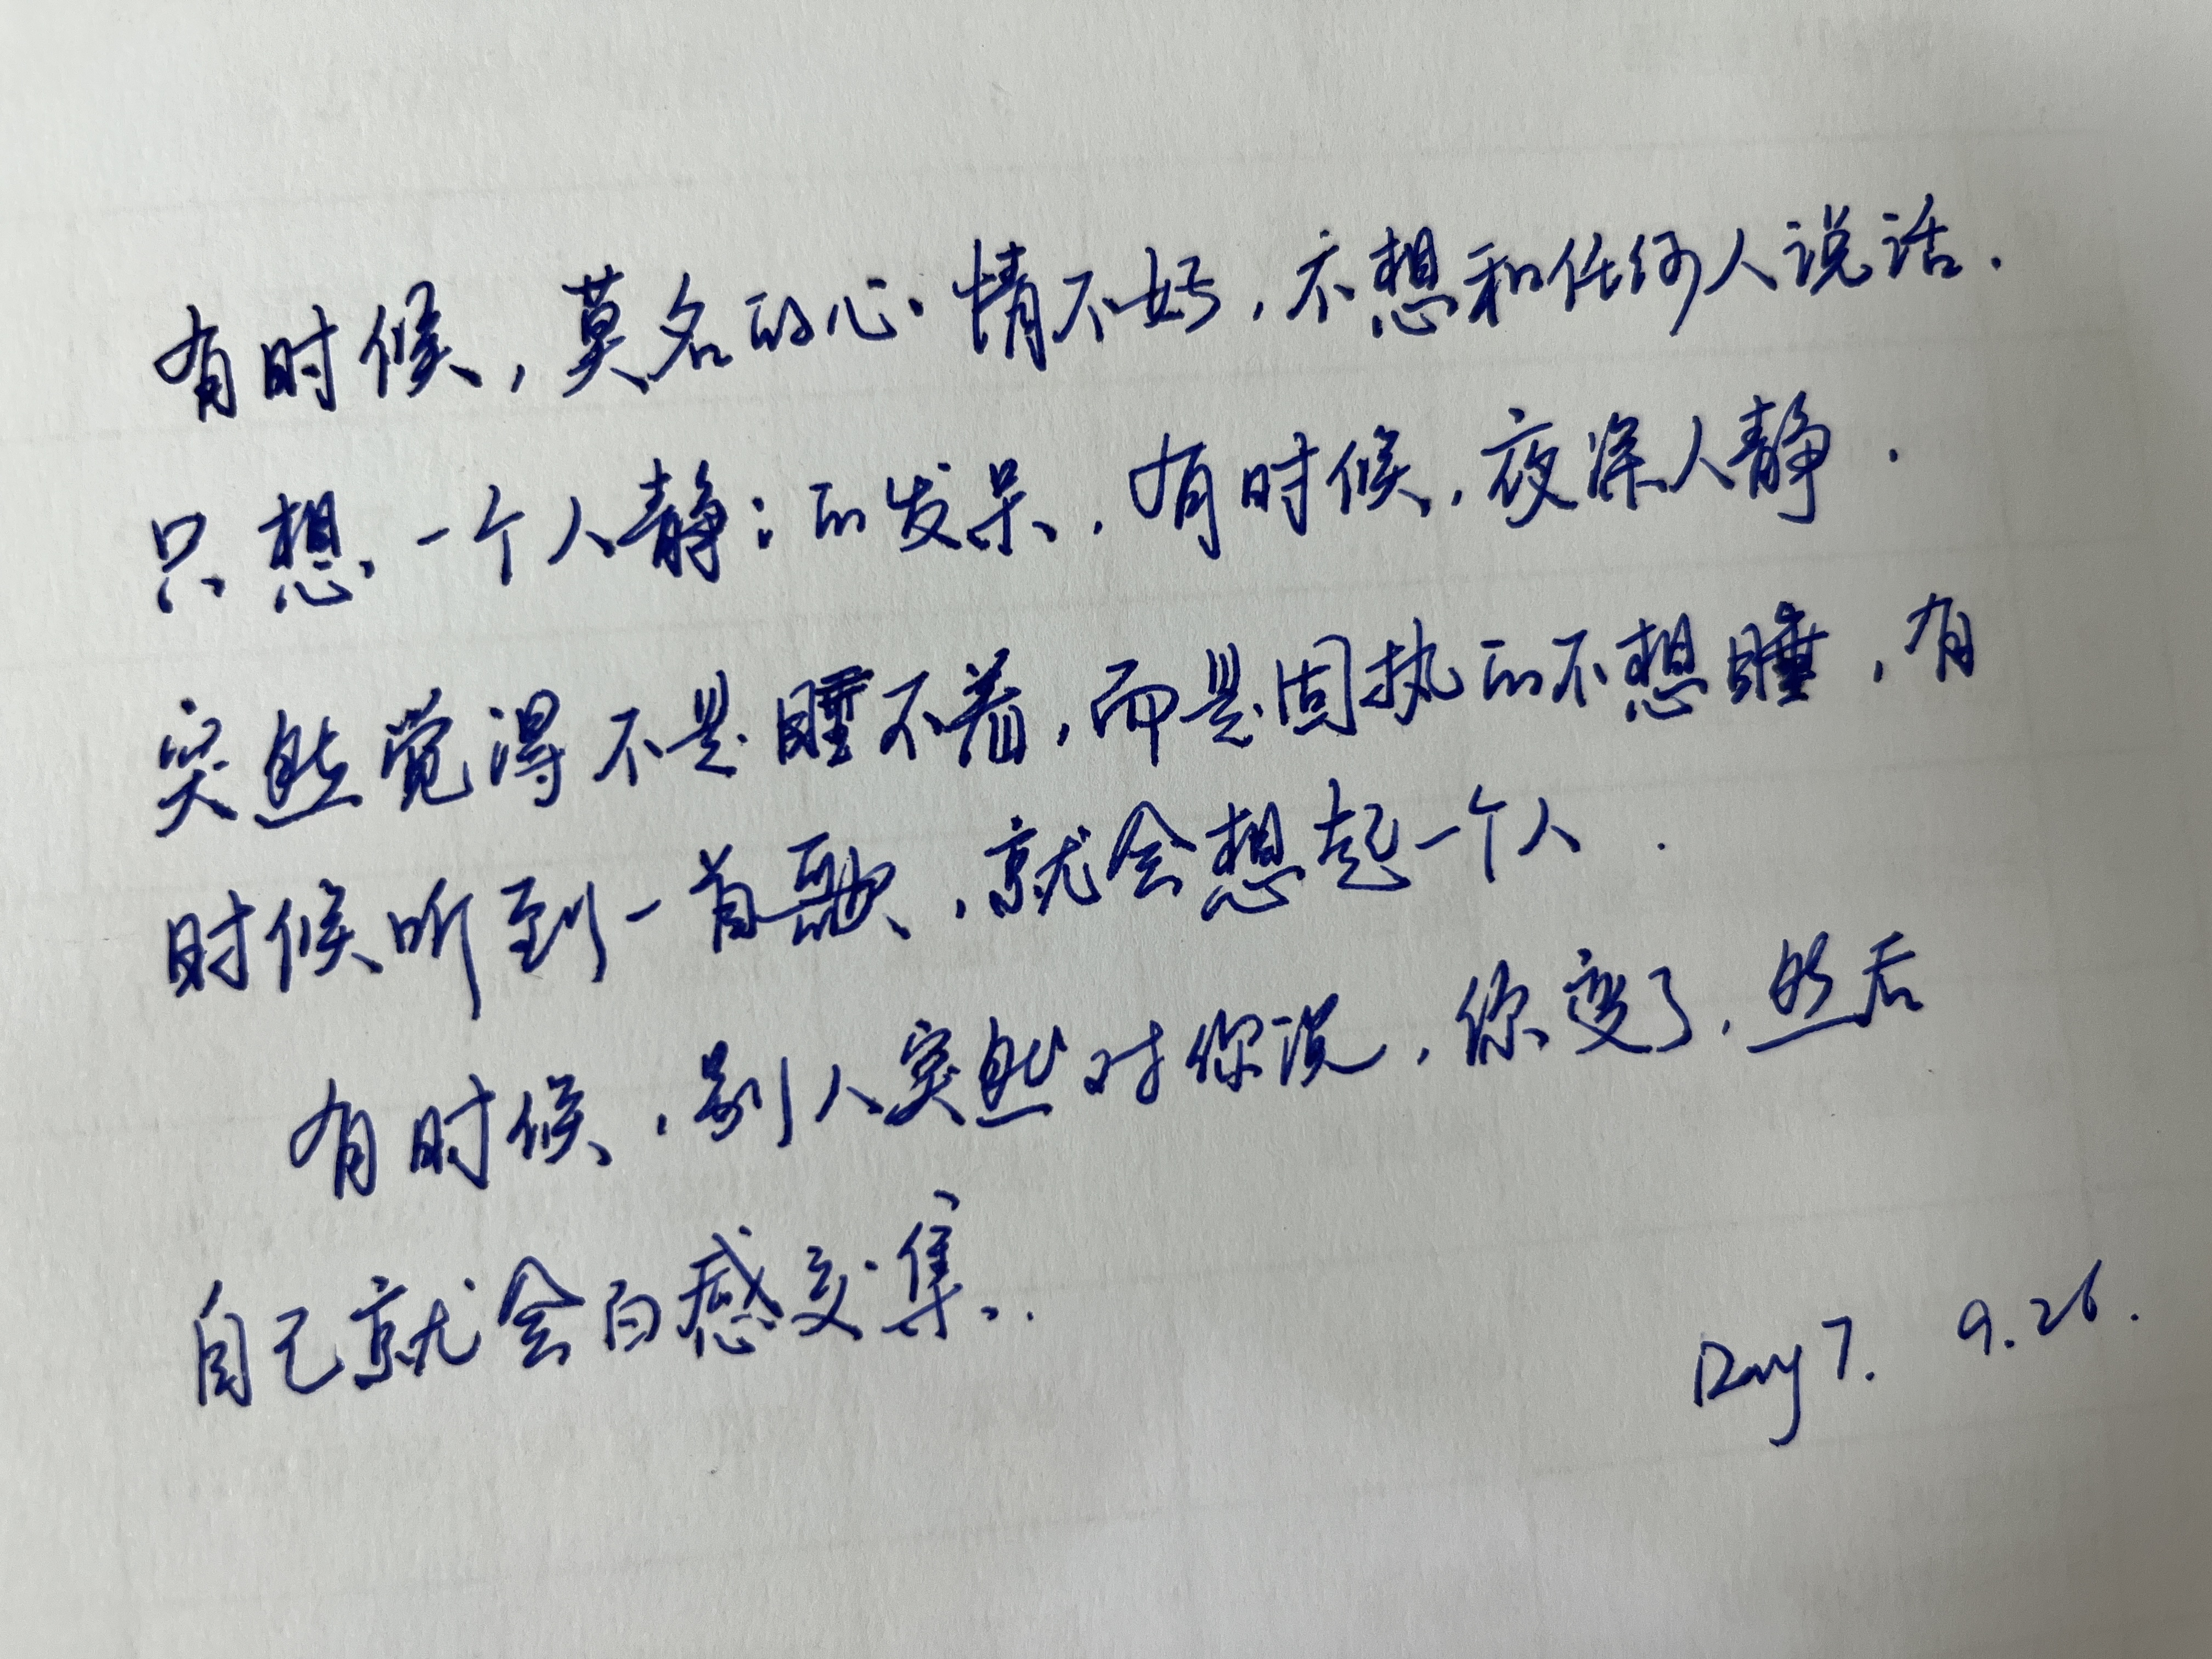 有时候，莫名的心情不好，不想和任何人说话.
只想一个人静：的发呆.有时候，夜深人静.
突然觉得不是睡不着，而是固执的不想睡，有
时候听到一首歌，就会想起一个人.
有时候，别人突然对你说，你变了，然后
自己就会百感交集.
Day 7. 9.26.